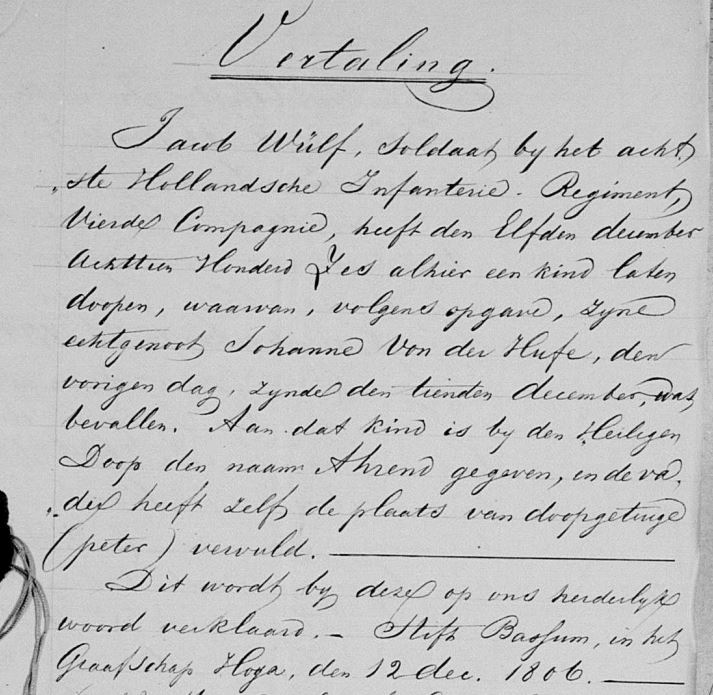 Vertaling.
Jacob Wülf, Soldaat by het acht
„ste Hollandsche Infanterie-Regiment,
Vierde Compagnie, heeft den Elfden december
Achttien Honderd Zes alhier een kind laten
doopen, waarvan, volgens opgave, zyne
echtgenoot Johanne Von der Hufe, den
vorigen dag, zynde den tienden december, was
bevallen. Aan dat kind is by den Heiligen
Doop den naam Ahrend gegeven, en de va„
„der heeft zelf de plaats van doopgetuige
(peter) vervuld.
Dit wordt by deze op ons herderlyk
woord verklaard. – Stift Bassum, in het
Graafschap Hoya, den 12 dec. 1806.